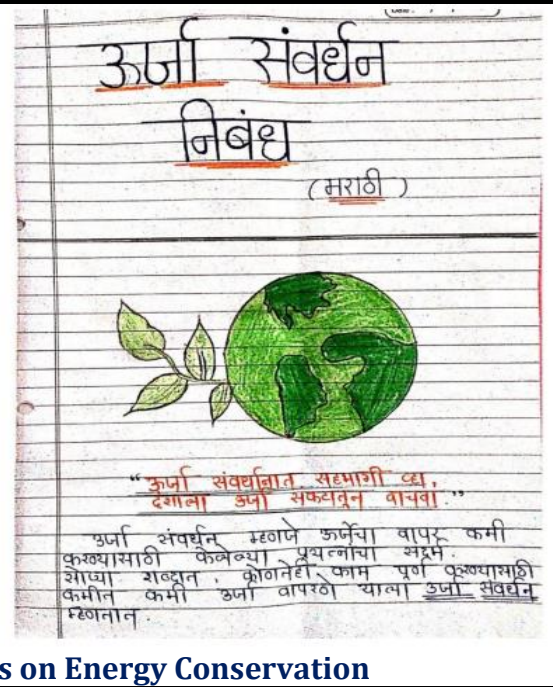 ऊर्जा संवर्धन
निबंध
(मराठी)
“ऊर्जा संवर्धनात सहभागी व्हा,
देशाला ऊर्जा संकटातून वाचवा.”
ऊर्जा संवर्धन म्हणजे ऊर्जेचा वापर कमी
करण्यासाठी केलेल्या प्रयत्नांचा संदर्भ.
सोप्या शब्दात, कोणतेही काम पूर्ण करण्यासाठी
कमीत कमी ऊर्जा वापरणे याला ऊर्जा संवर्धन
म्हणतात.
s on Energy Conservation